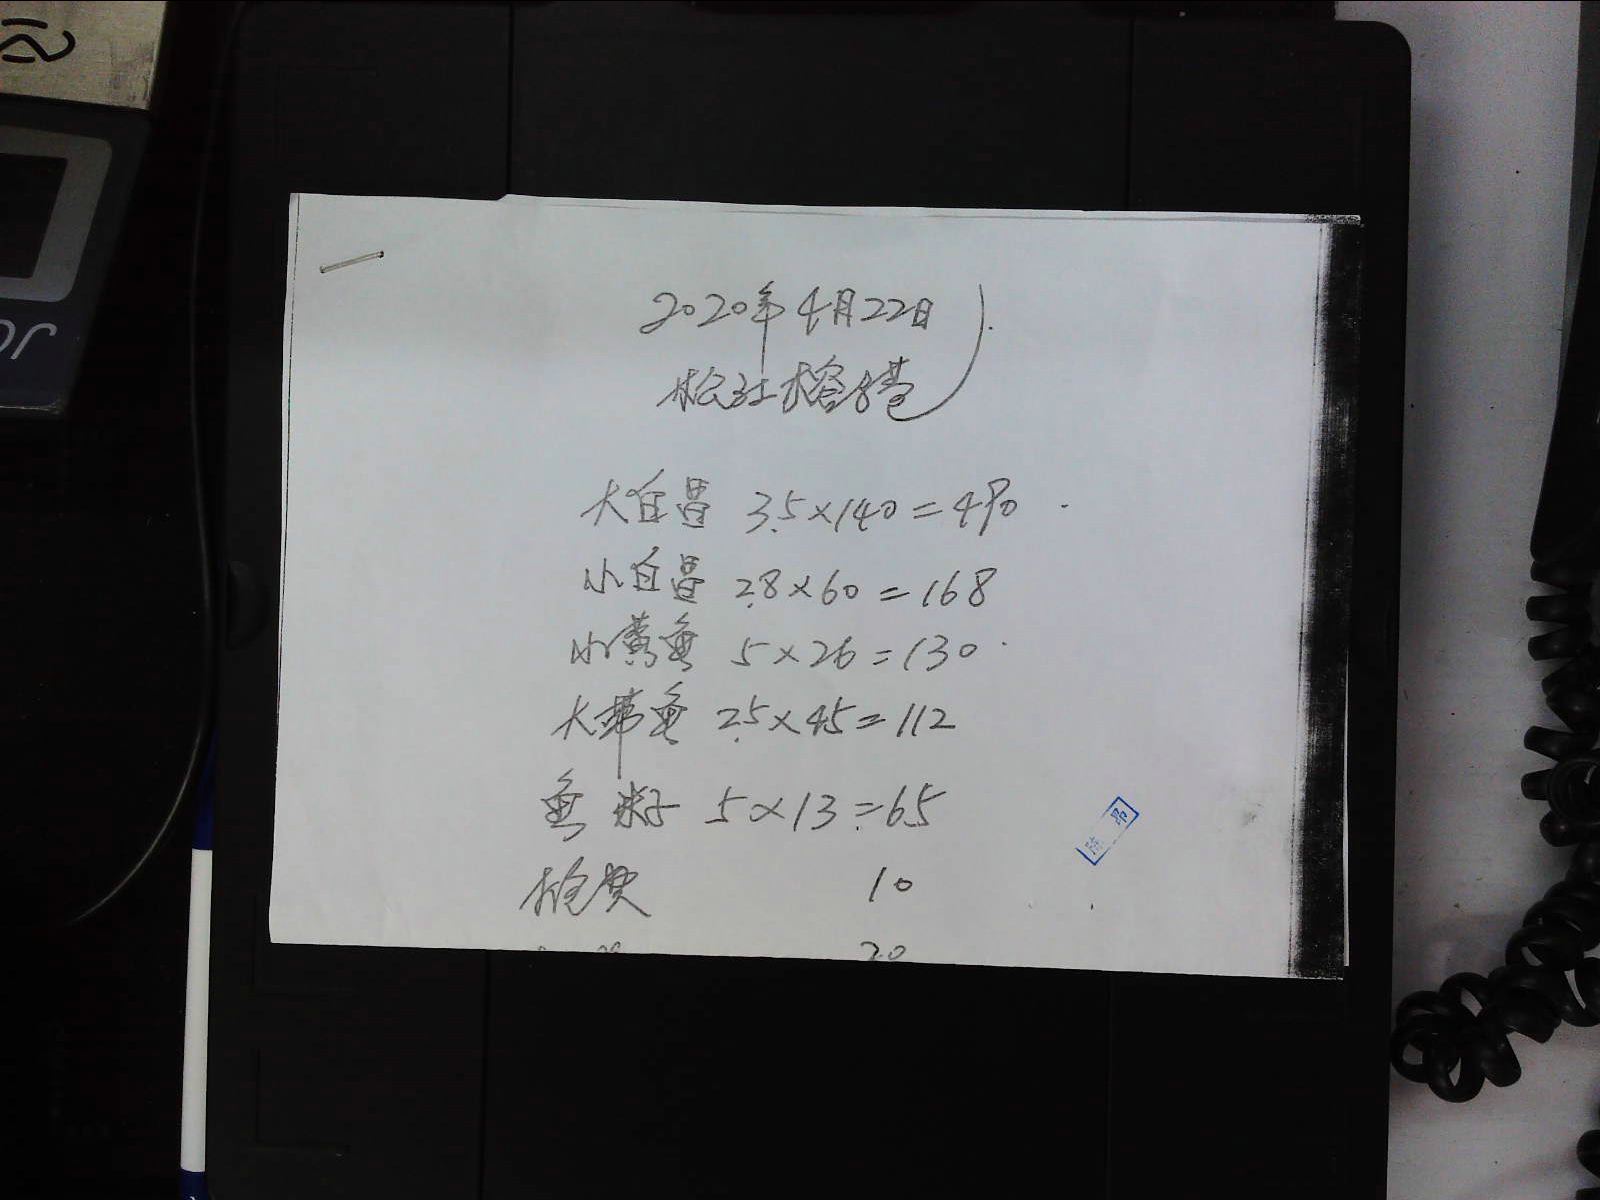 2020年4月22日
松江榕港
大白昌 3.5×140=490
小白昌 2.8×60=168
小黄鱼 5×26=130
大带鱼 2.5×45=112
鱼籽 5×13=65
10
20